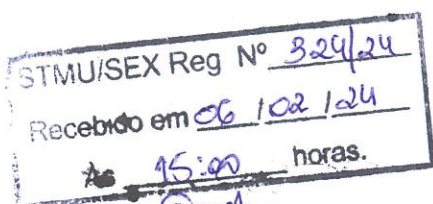 STMU/SEX Reg Nº 324/24
Recebido em 06 / 02 / 24
às 15:00 horas.